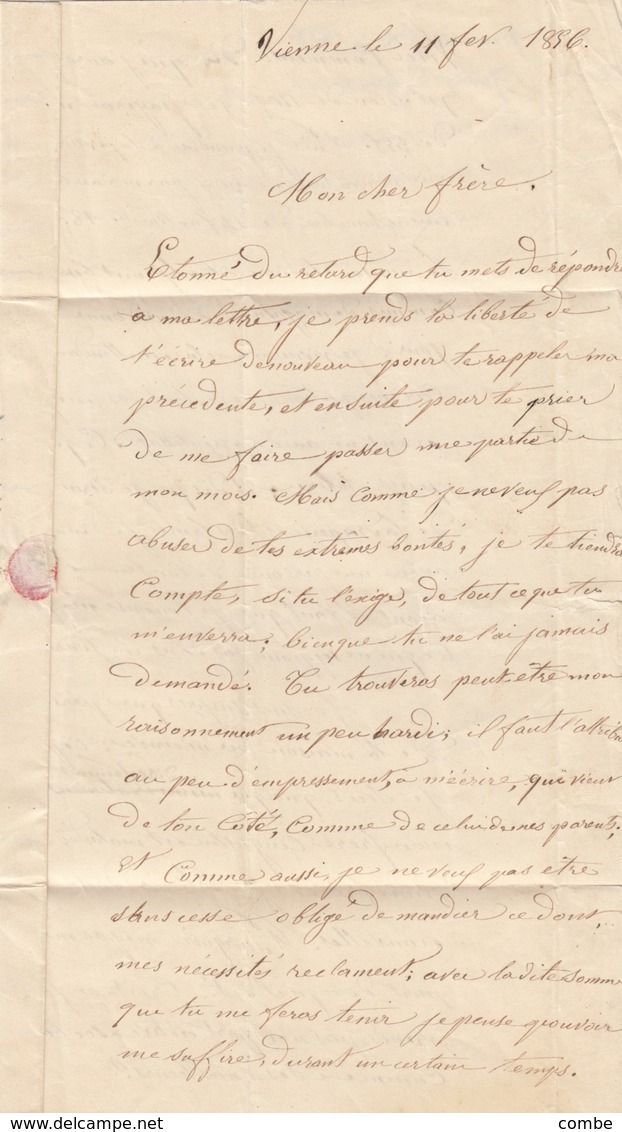 Vienne le 11 fev. 1836.
Mon cher frère.
Etonné du retard que tu mets de répondre
à ma lettre, je prends la liberté de
t'écrire de nouveau pour te rappeler ma
précédente, et ensuite pour te prier
de me faire passer une partie de
mon mois. Mais comme je ne veux pas
abuser de tes extrêmes bontés, je te tiendrai
compte, si tu l'exige, de tout ce que tu
m'enverra; bien que tu ne l'ai jamais
demandé. Tu trouveras peut-être mon
raisonnement un peu hardi; il faut l'attribu
au peu d'empressement, à m'écrire, qui vient
de ton Côté, Comme de celui de mes parents;
et Comme aussi je ne veux pas être
sans cesse obligé de mandier ce dont,
mes nécessités reclament; avec la dite somme
que tu me feras tenir je pense pouvoir
me suffire, durant un certain temps.
www.delcampe.net
combe